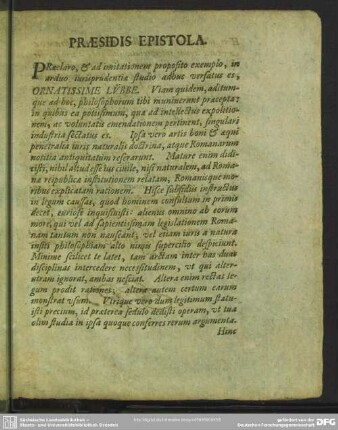 PRÆSIDIS EPISTOLA.
PRæclaro, & ad imitationem proposito exemplo, in
arduo iurisprudentiæ studio adhuc versatus es,
ORNATISSIME LYBBE. Viam quidem, aditum-
que ad hoc, philosophorum tibi muniverunt præcepta;
in quibus ea potissimum, quæ ad intellectus expolitio-
nem, ac voluntatis emendationem pertinent, singulari
industria sectatus es. Ipsa vero artis boni & æqui
penetralia iuris naturalis doctrina, atque Romanarum
notitia antiquitatum reserarunt. Mature enim didi-
cisti, nihil aliud esse ius civile, nisi naturalem, ad Roma-
næ reipublicæ institutionem relatam, Romanisque mo-
ribus explicatam rationem. Hisce subsidiis instructus
in legum caussas, quod hominem consultum in primis
decet, curiose inquisivisti: alienus omnino ab eorum
more, qui vel ad sapientissimam legislationem Roma-
nam tantum non nauseant, vel etiam iuris a natura
insiti philosophiam alto nimis supercilio despiciunt.
Minime scilicet te latet, tam arctam inter has duas
disciplinas intercedere necessitudinem, vt qui alter-
utram ignorat, ambas nesciat. Altera enim rectas le-
gum prodit rationes; altera autem certum earum
monstrat vsum. Vtrique vero dum legitimum statu-
isti precium, id præterea sedulo dedisti operam, vt tua
olim studia in ipsa quoque conferres rerum argumenta.
Hinc